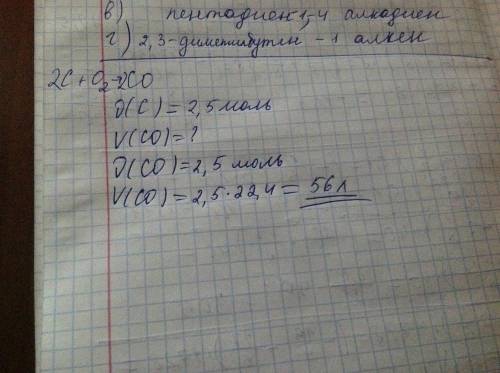 в) пентадиен 1,4 алкадиен
г) 2,3-диметилбутен -1 алкен
2C + O₂ → 2CO
ϑ(C) = 2,5 моль
V(CO) = ?
ϑ(CO) = 2,5 моль
V(CO) = 2,5 · 22,4 = 56 л